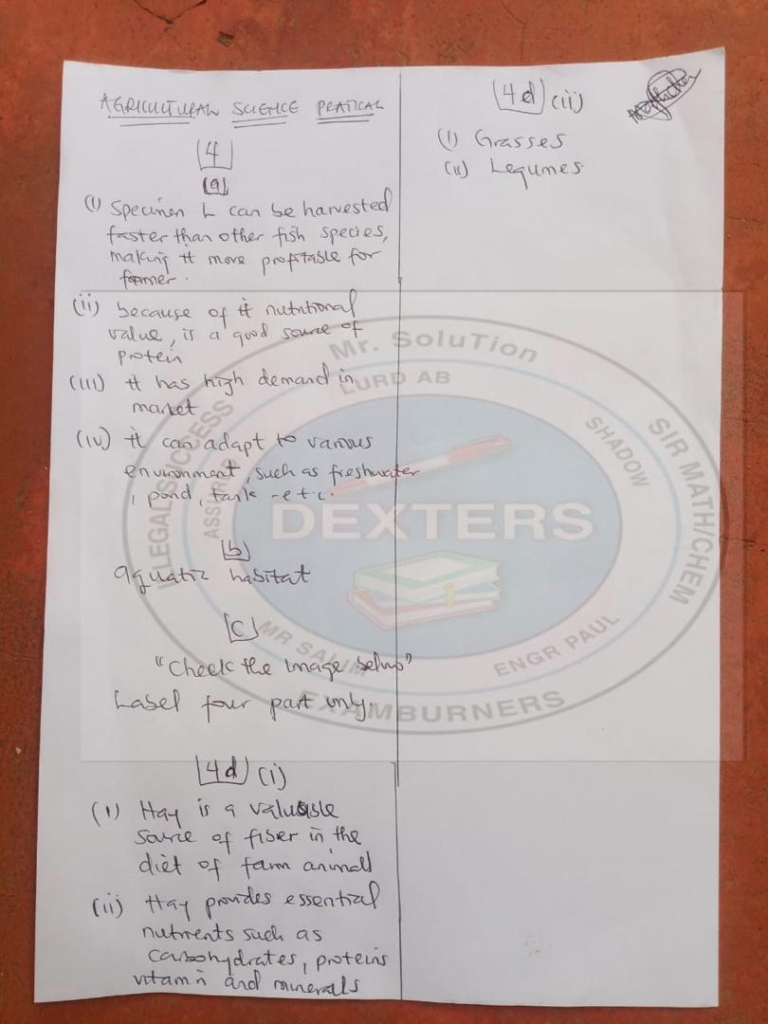 AGRICULTURAL SCIENCE PRATICAL
4
(a)
(i) Specimen L can be harvested
faster than other fish species,
making it more profitable for
farmer.
(ii) because of it nutritional
value, is a good source of
protein
(iii) It has high demand in
market
(iv) it can adapt to various
environment, such as freshwater
, pond, tank - etc.
b
aquatic habitat
C
"Check the image below"
Label four part only.
4d (i)
(i) Hay is a valuable
source of fiber in the
diet of farm animal
(ii) Hay provides essential
nutrients such as
carbohydrates, proteins
vitamin and minerals
4d (ii)
(i) Grasses
(ii) Legumes
Mr. SoluTion
LURD AB
SHADOW
SIR MATH/CHEM
DEXTERS
MR SALIM
ENGR PAUL
EXAMBURNERS